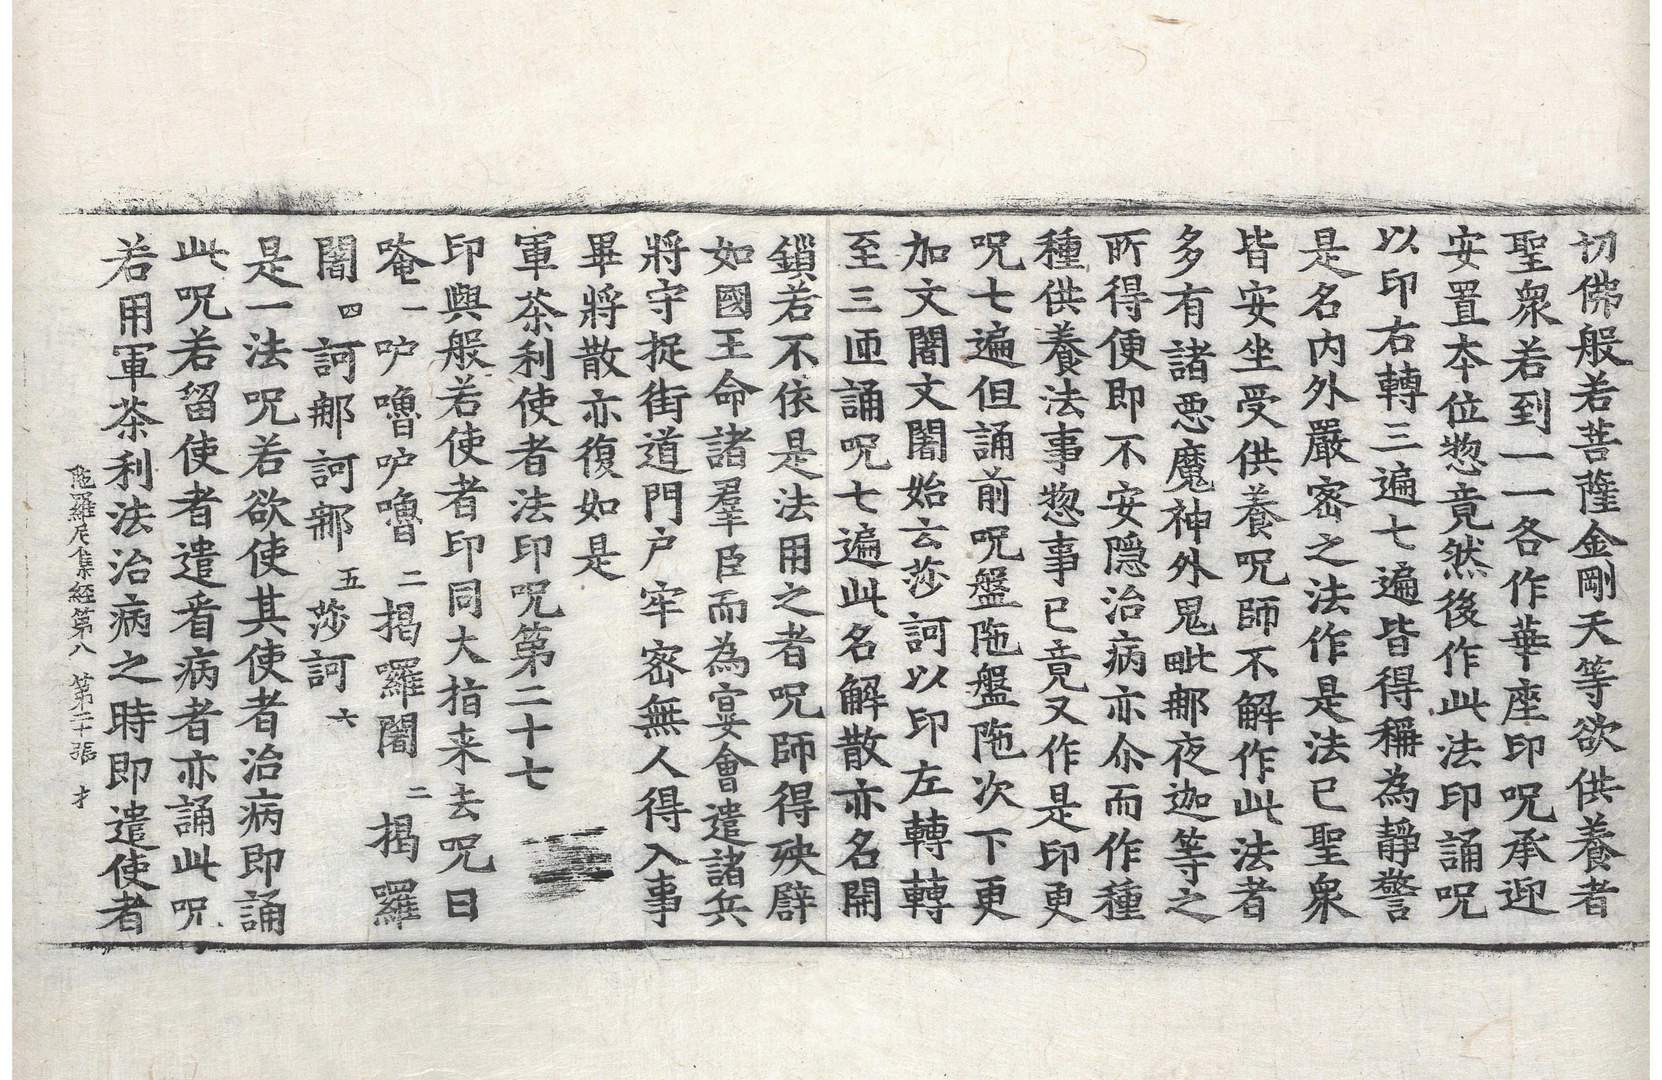 切佛般若菩薩金剛天等欲供養者
聖衆若到一一各作華座印呪承迎
安置本位惣竟然後作此法印誦呪
以印右轉三遍七遍皆得稱為靜警
是名内外嚴密之法作是法已聖衆
皆安坐受供養呪師不解作此法者
多有諸悪魔神外鬼毗那夜迦等之
所得便即不安隱治病亦尒而作種
種供養法事惣事已竟又作是印更
呪七遍但誦前呪盤陁盤陁次下更
加文闍文闍始云莎訶以印左轉轉
至三迊誦呪七遍此名解散亦名開
鎖若不依是法用之者呪師得殃譬
如國王命諸羣臣而為宴會遣諸兵
將守捉街道門户牢密無人得入事
畢將散亦復如是
軍荼利使者法印呪第二十七
印與般若使者印同大指来去呪曰
唵一吣嚕吣嚕二揭囉闍二揭囉
闍四訶那訶那五莎訶六
是一法呪若欲使其使者治病即誦
此呪若留使者遣看病者亦誦此呪
若用軍荼利法治病之時即遣使者
陁羅尼集經第八 第二十張 才